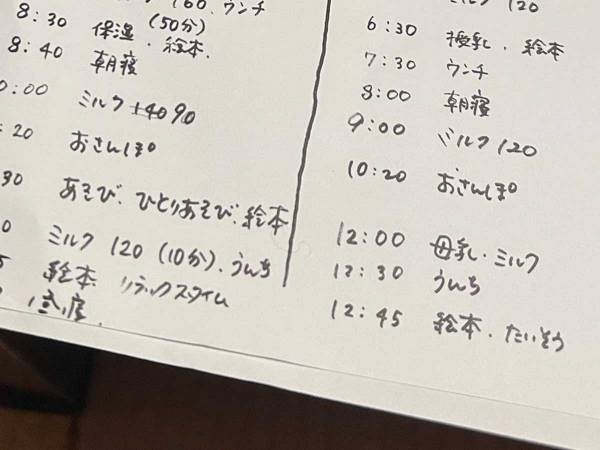 160. ウンチ
8:30 保湿. 絵本.
(50分)
8:40 朝寝
0:00 ミルク 90
:20 おさんぽ
30 あそび. ひとりあそび. 絵本
0 ミルク 120 (10分). うんち
5 絵本 リラックスタイム
昼寝.
ミルク 120
6:30 授乳. 絵本
7:30 ウンチ
8:00 朝寝
9:00 ミルク 120
10:20 おさんぽ
12:00 母乳・ミルク
12:30 うんち
12:45 絵本. たいそう